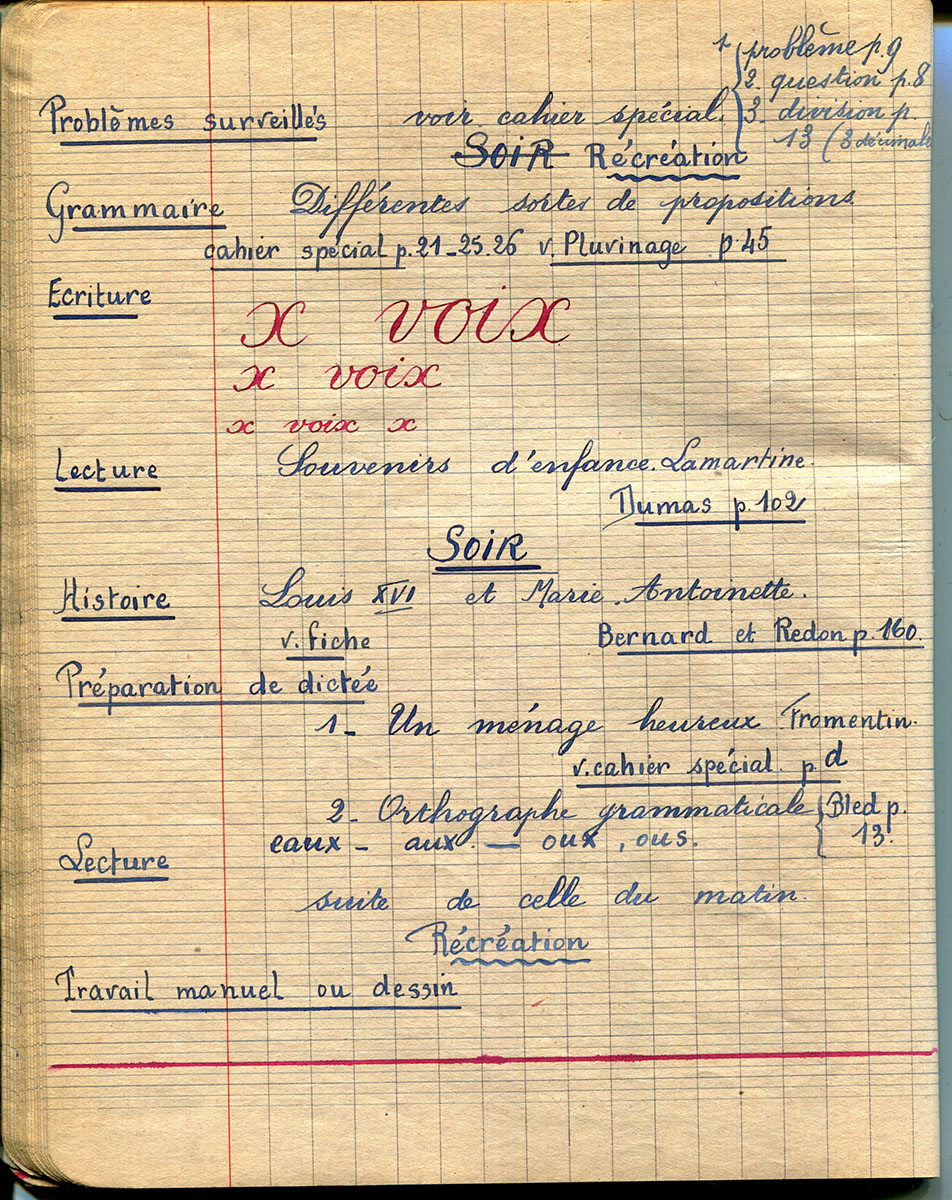 1 problème p.9
2. question p.8
Problèmes surveillés voir cahier spécial. 3. division p.
13 (3 décimale
SOIR Récréation
Grammaire Différentes sortes de propositions.
cahier spécial p.21_25.26 v. Pluvinage p.45
Ecriture
x voix
x voix
x voix x
Lecture Souvenirs d'enfance. Lamartine.
Dumas p.102
SOIR
Histoire Louis XVI et Marie.Antoinette.
v. fiche Bernard et Redon p.160.
Préparation de dictée
1_ Un ménage heureux Fromentin.
v.cahier spécial p.d
2_ Orthographe grammaticale { Bled p.
eaux _ aux. — oux , ous. 13.
Lecture
suite de celle du matin.
Récréation
Travail manuel ou dessin